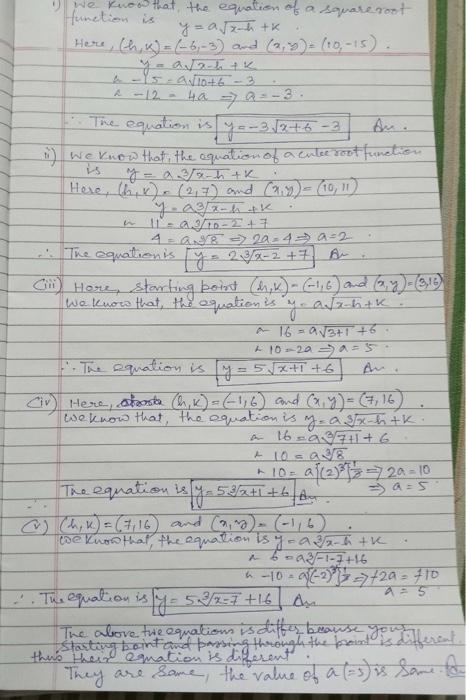 i) We know that, the equation of a square root
function is y = a√x-h + k
Here, (h,k) = (-6,-3) and (x,y) = (10,-15).
y = a√x-h + k
-15 = a√10+6 - 3
-12 = 4a ⇒ a = -3.
∴ The equation is y = -3√x+6 - 3 An.
ii) We know that, the equation of a cube root function
is y = a ∛x-h + k.
Here, (h,k) = (2,7) and (x,y) = (10,11)
y = a∛x-h + k
11 = a∛10-2 + 7
4 = a∛8 ⇒ 2a = 4 ⇒ a = 2
∴ The equation is y = 2∛x-2 + 7 An
(iii) Here, starting point (h,k) = (-1,6) and (x,y) = (3,16)
We know that, the equation is y = a√x-h + k.
16 = a√3+1 + 6.
10 = 2a ⇒ a = 5.
∴ The equation is y = 5√x+1 + 6 An.
(iv) Here, (h,k) = (-1,6) and (x,y) = (7,16).
We know that, the equation is y = a ∛x-h + k.
16 = a∛7+1 + 6
10 = a∛8
10 = a{(2)³}^1/3 ⇒ 2a = 10
⇒ a = 5
∴ The equation is y = 5∛x+1 + 6 An
(v) (h,k) = (7,16) and (x,y) = (-1,6).
We know that, the equation is y = a∛x-h + k
6 = a∛-1-7 + 16
-10 = a{(-2)³}^1/3 ⇒ +2a = +10
a = 5
∴ The equation is y = 5∛x-7 + 16 An
The above two equations is differ because your
starting point and passing through the point is different.
thus their equation is different.
They are same, the value of a (=5) is same.